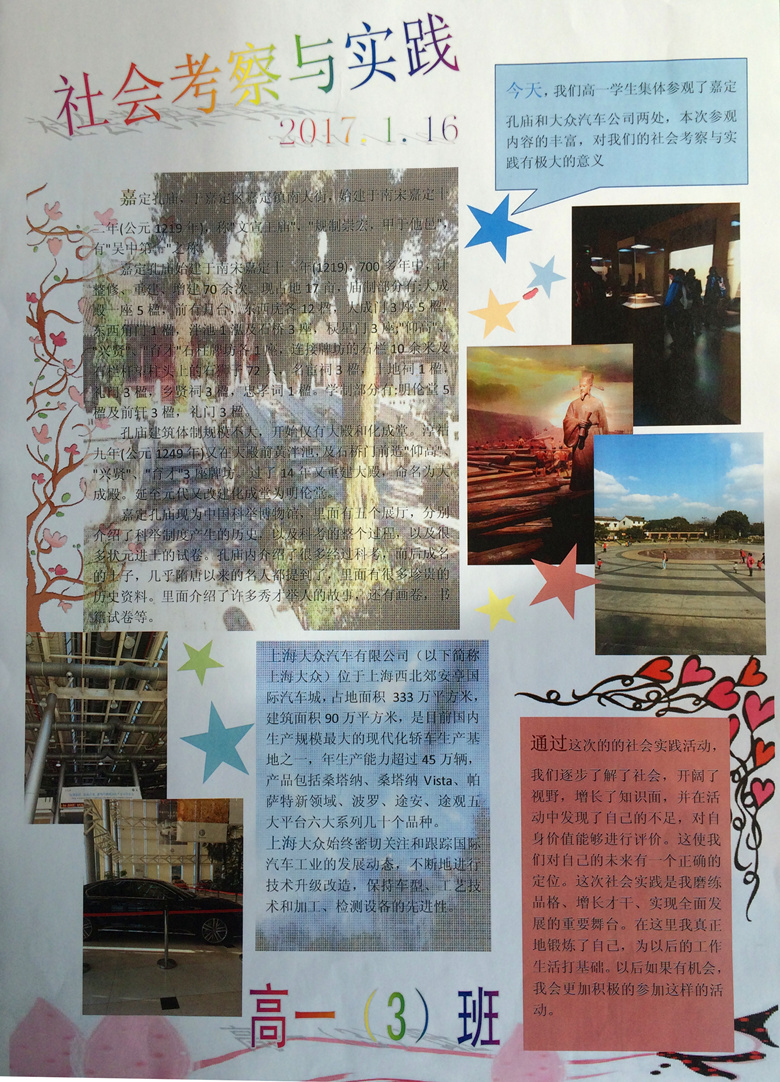 社会考察与实践
2017.1.16
今天,我们高一学生集体参观了嘉定
孔庙和大众汽车公司两处,本次参观
内容的丰富,对我们的社会考察与实
践有极大的意义
嘉定孔庙,于嘉定区嘉定镇南大街,始建于南宋嘉定十
二年(公元1219年),称"文宣王庙","规制崇宏,甲于他邑",
有"吴中第一"之称。
嘉定孔庙始建于南宋嘉定十二年(1219),700多年中,计
整修、重建、增建70余次。现占地17亩,庙制部分有:大成
殿一座5楹,前有月台,东西庑各12楹,大成门3座5楹,
东西角门1楹,泮池1泓及石桥3座,棂星门3座;"仰高"、
"兴贤"、"育才"石柱牌坊各1座,连接牌坊的石栏10余米及
石栏杆望柱头上的石狮子72只,名宦祠3楹,土地祠1楹,
礼门3楹,乡贤祠3楹,忠孝词1楹。学制部分有:明伦堂5
楹及前轩3楹,礼门3楹。
孔庙建筑体制规模不大,开始仅有大殿和化成堂。淳祐
九年(公元1249年)又在大殿前黄泮池,及石桥门前造"仰高"、
"兴贤"、"育才"3座牌坊。过了14年又重建大殿,命名为大
成殿。延至元代又改建化成堂为明伦堂。
嘉定孔庙现为中国科举博物馆,里面有五个展厅,分别
介绍了科举制度产生的历史,以及科考的整个过程,以及很
多状元进士的试卷。孔庙内介绍了很多经过科考,而后成名
的士子,几乎隋唐以来的名人都提到了,里面有很多珍贵的
历史资料。里面介绍了许多秀才举人的故事,还有画卷,书
籍试卷等。
上海大众汽车有限公司(以下简称
上海大众)位于上海西北郊安亭国
际汽车城,占地面积 333万平方米,
建筑面积90万平方米,是目前国内
生产规模最大的现代化轿车生产基
地之一,年生产能力超过45万辆,
产品包括桑塔纳、桑塔纳Vista、帕
萨特新领域、波罗、途安、途观五
大平台六大系列几十个品种。
上海大众始终密切关注和跟踪国际
汽车工业的发展动态,不断地进行
技术升级改造,保持车型、工艺技
术和加工、检测设备的先进性。
通过这次的的社会实践活动,
我们逐步了解了社会,开阔了
视野,增长了知识面,并在活
动中发现了自己的不足,对自
身价值能够进行评价。这使我
们对自己的未来有一个正确的
定位。这次社会实践是我磨练
品格、增长才干、实现全面发
展的重要舞台。在这里我真正
地锻炼了自己,为以后的工作
生活打基础。以后如果有机会,
我会更加积极的参加这样的活
动。
高一(3)班